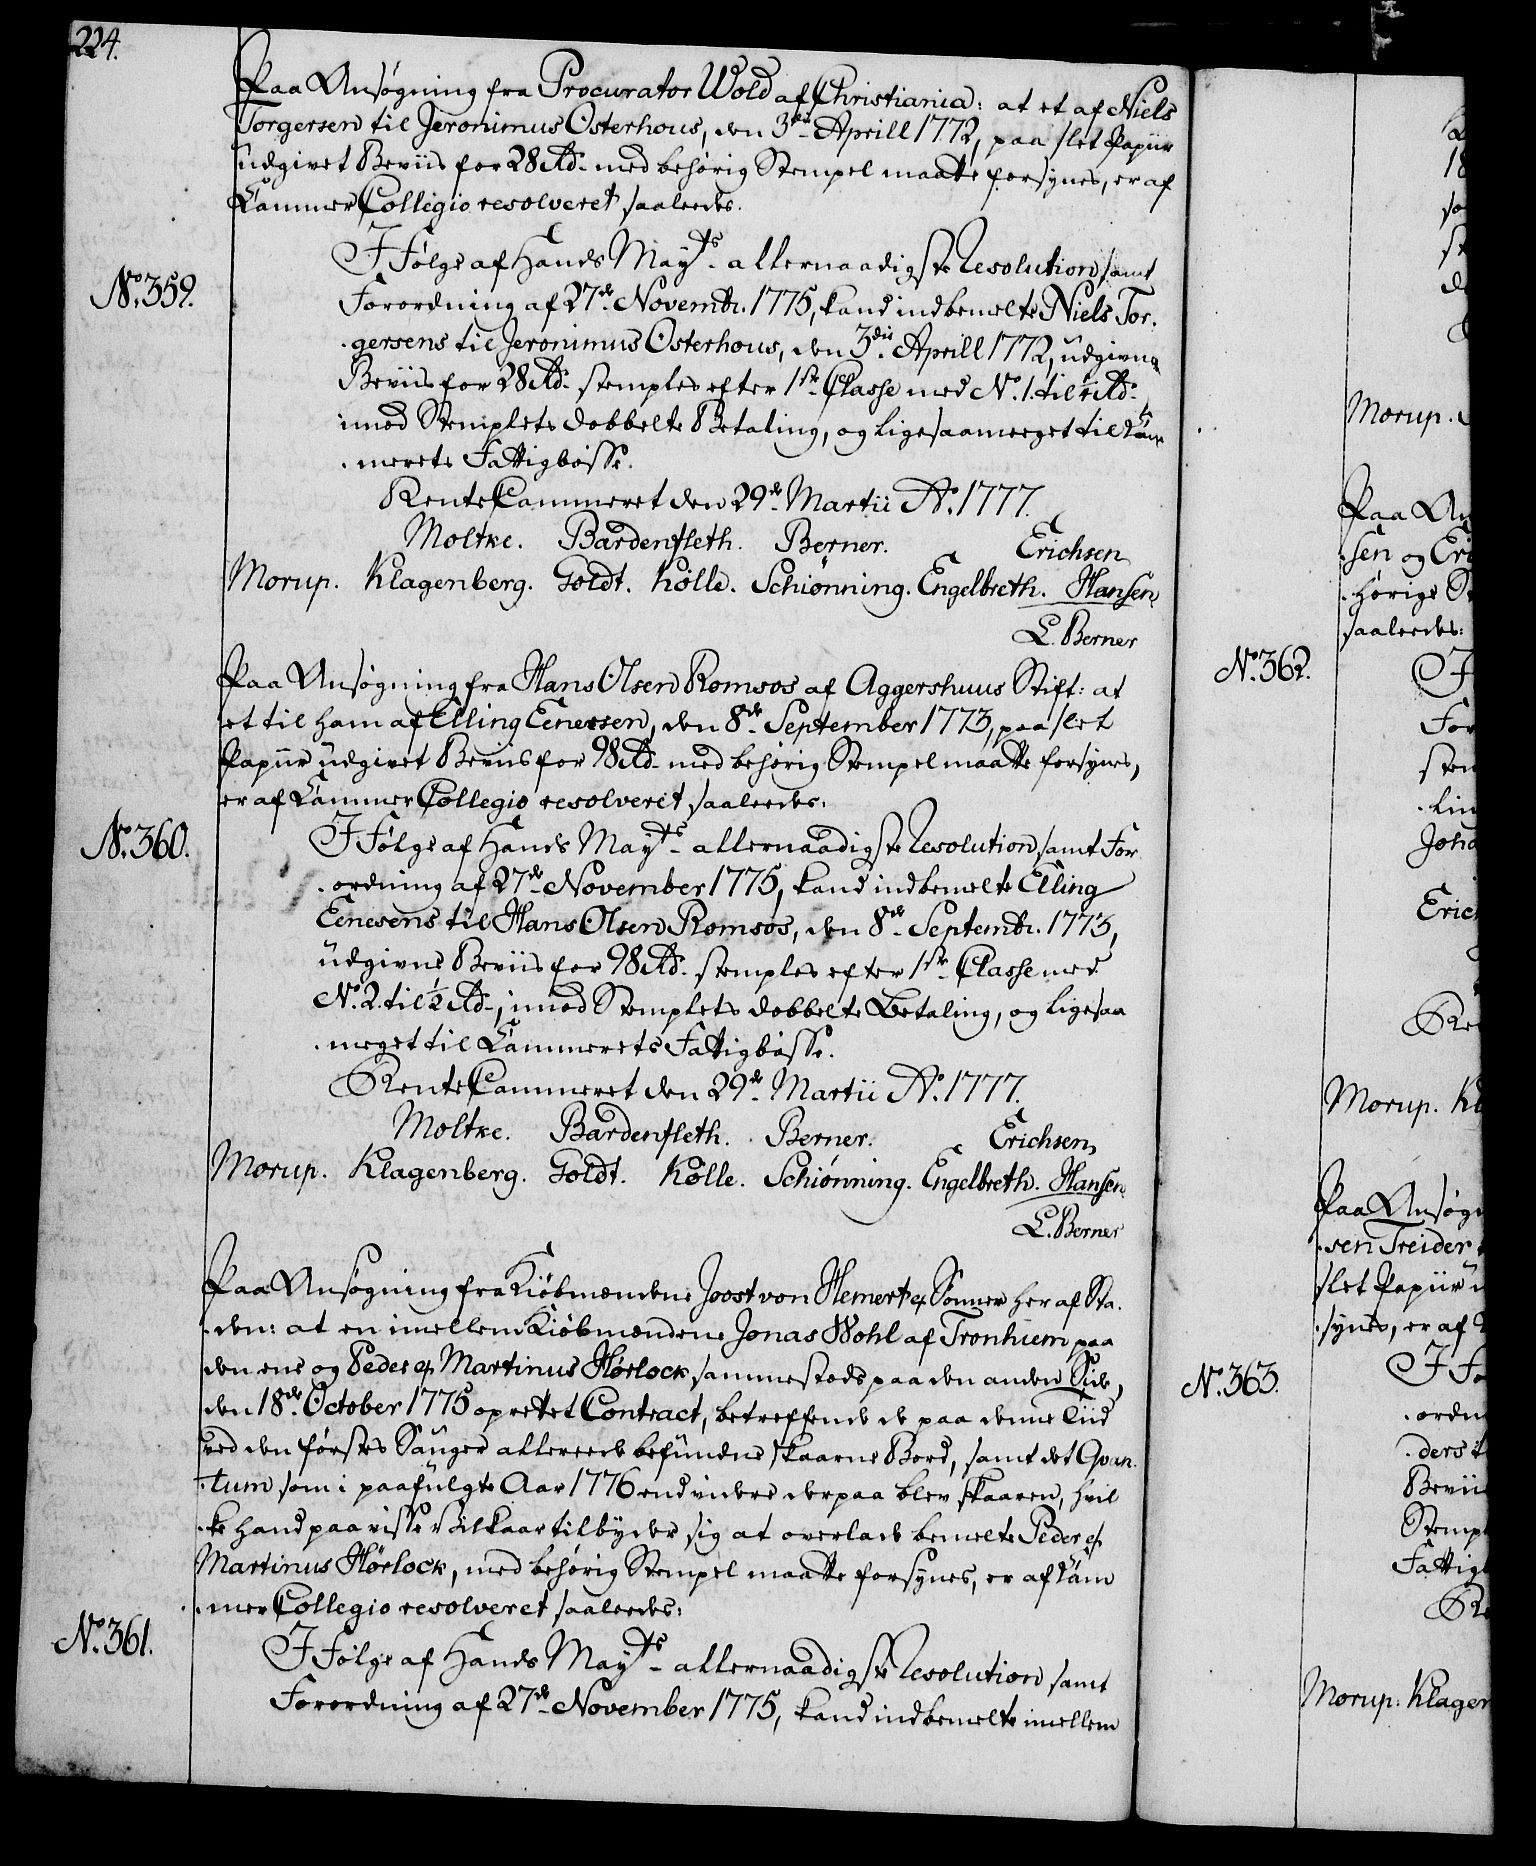 224.
Paa Ansøgning fra Procurator Wold af Christiania: at et af Niels
Torgersen til Jeronimus Osterhous, den 3die Aprill 1772, paa slet Papiir
udgivet Beviis for 28 Rd. med behørig Stempel maatte forsynes, er af
Kammer Collegio resolveret saaledes.
No. 359.
I Følge af Hands Mayts. allernaadigste Resolution samt
Forordning af 27de Novembr. 1775, kand indbemelte Niels Tor-
gersens til Jeronimus Osterhous, den 3die Aprill 1772, udgivne
Beviis for 28 Rd. stemples efter 1ste Classe med No. 1. til Rd.
imod Stemplets dobbelte Betaling, og ligesaameeget til Kam-
merets Fattigbøsse.
RenteCammeret den 29de Martii Ao. 1777.
Moltke. Bardenfleth. Berner. Erichsen
Morup. Klagenberg. Goldt. Kölle. Schiønning. Engelbreth. Hansen
L. Berner
Paa Ansøgning fra Hans Olsen Romsos af Aggershuus Stift: at
et til ham af Elling Eenersen, den 8de September 1773, paa slet
Papiir udgivet Beviis for 98 Rd. med behørig Stempel maatte forsynes,
er af Kammer Collegio resolveret saaledes:
No. 360.
I Følge af Hands Mayts. allernaadigste Resolution, samt For-
ordning af 27de November 1775, kand indbemelte Elling
Eenesens til Hans Olsen Romsos, den 8de Septembr. 1773,
udgivne Beviis for 98 Rd. stemples efter 1ste Classe med
No. 2. til ½ Rd., imod Stemplets dobbelte Betaling, og ligesaa
meget til Kammerets Fattigbøsse.
RenteCammeret den 29de Martii Ao. 1777.
Moltke. Bardenfleth. Berner. Erichsen
Morup. Klagenberg. Goldt. Kölle. Schiønning. Engelbreth. Hansen
L. Berner
Paa Ansøgning fra Kiøbmændene Joost von Hemert & Sønner her af Sta-
den: at en imellem Kiøbmændene Jonas Wohl af Tronhiem paa
den ene og Peder & Martinus Hørlock sammesteds paa den anden Side,
den 18de October 1775 oprettet Contract, betreffende de paa denne Tiid
ved den førstes Sauger allereede befundne skaarne Bord, samt det Qvan-
tum som i paafulgte Aar 1776 endvidere derpaa blev skaaren, hvil-
ke hand paa visse Vilkaar tilbyder sig at overlade bemelte Peder &
Martinus Hørlock, med behørig Stempel maatte forsynes, er af Kam-
mer Collegio resolveret saaledes:
No. 361.
I Følge af Hands Mayts. allernaadigste Resolution samt
Forordning af 27de November 1775, kand indbemelte imellem
18
Morup.
Paa An
sen og Eri
hørige St
saaledes:
No. 362.
I F
For
stem
lin
Joha
Erich
Ren
Morup. Kl
Paa Ansøgn
sen Treider
slet Papiir u
synes, er af
No. 363.
I Fø
ordn
ders t
Beviis
Stempl
Fattigb
Re
Morup. Klagen